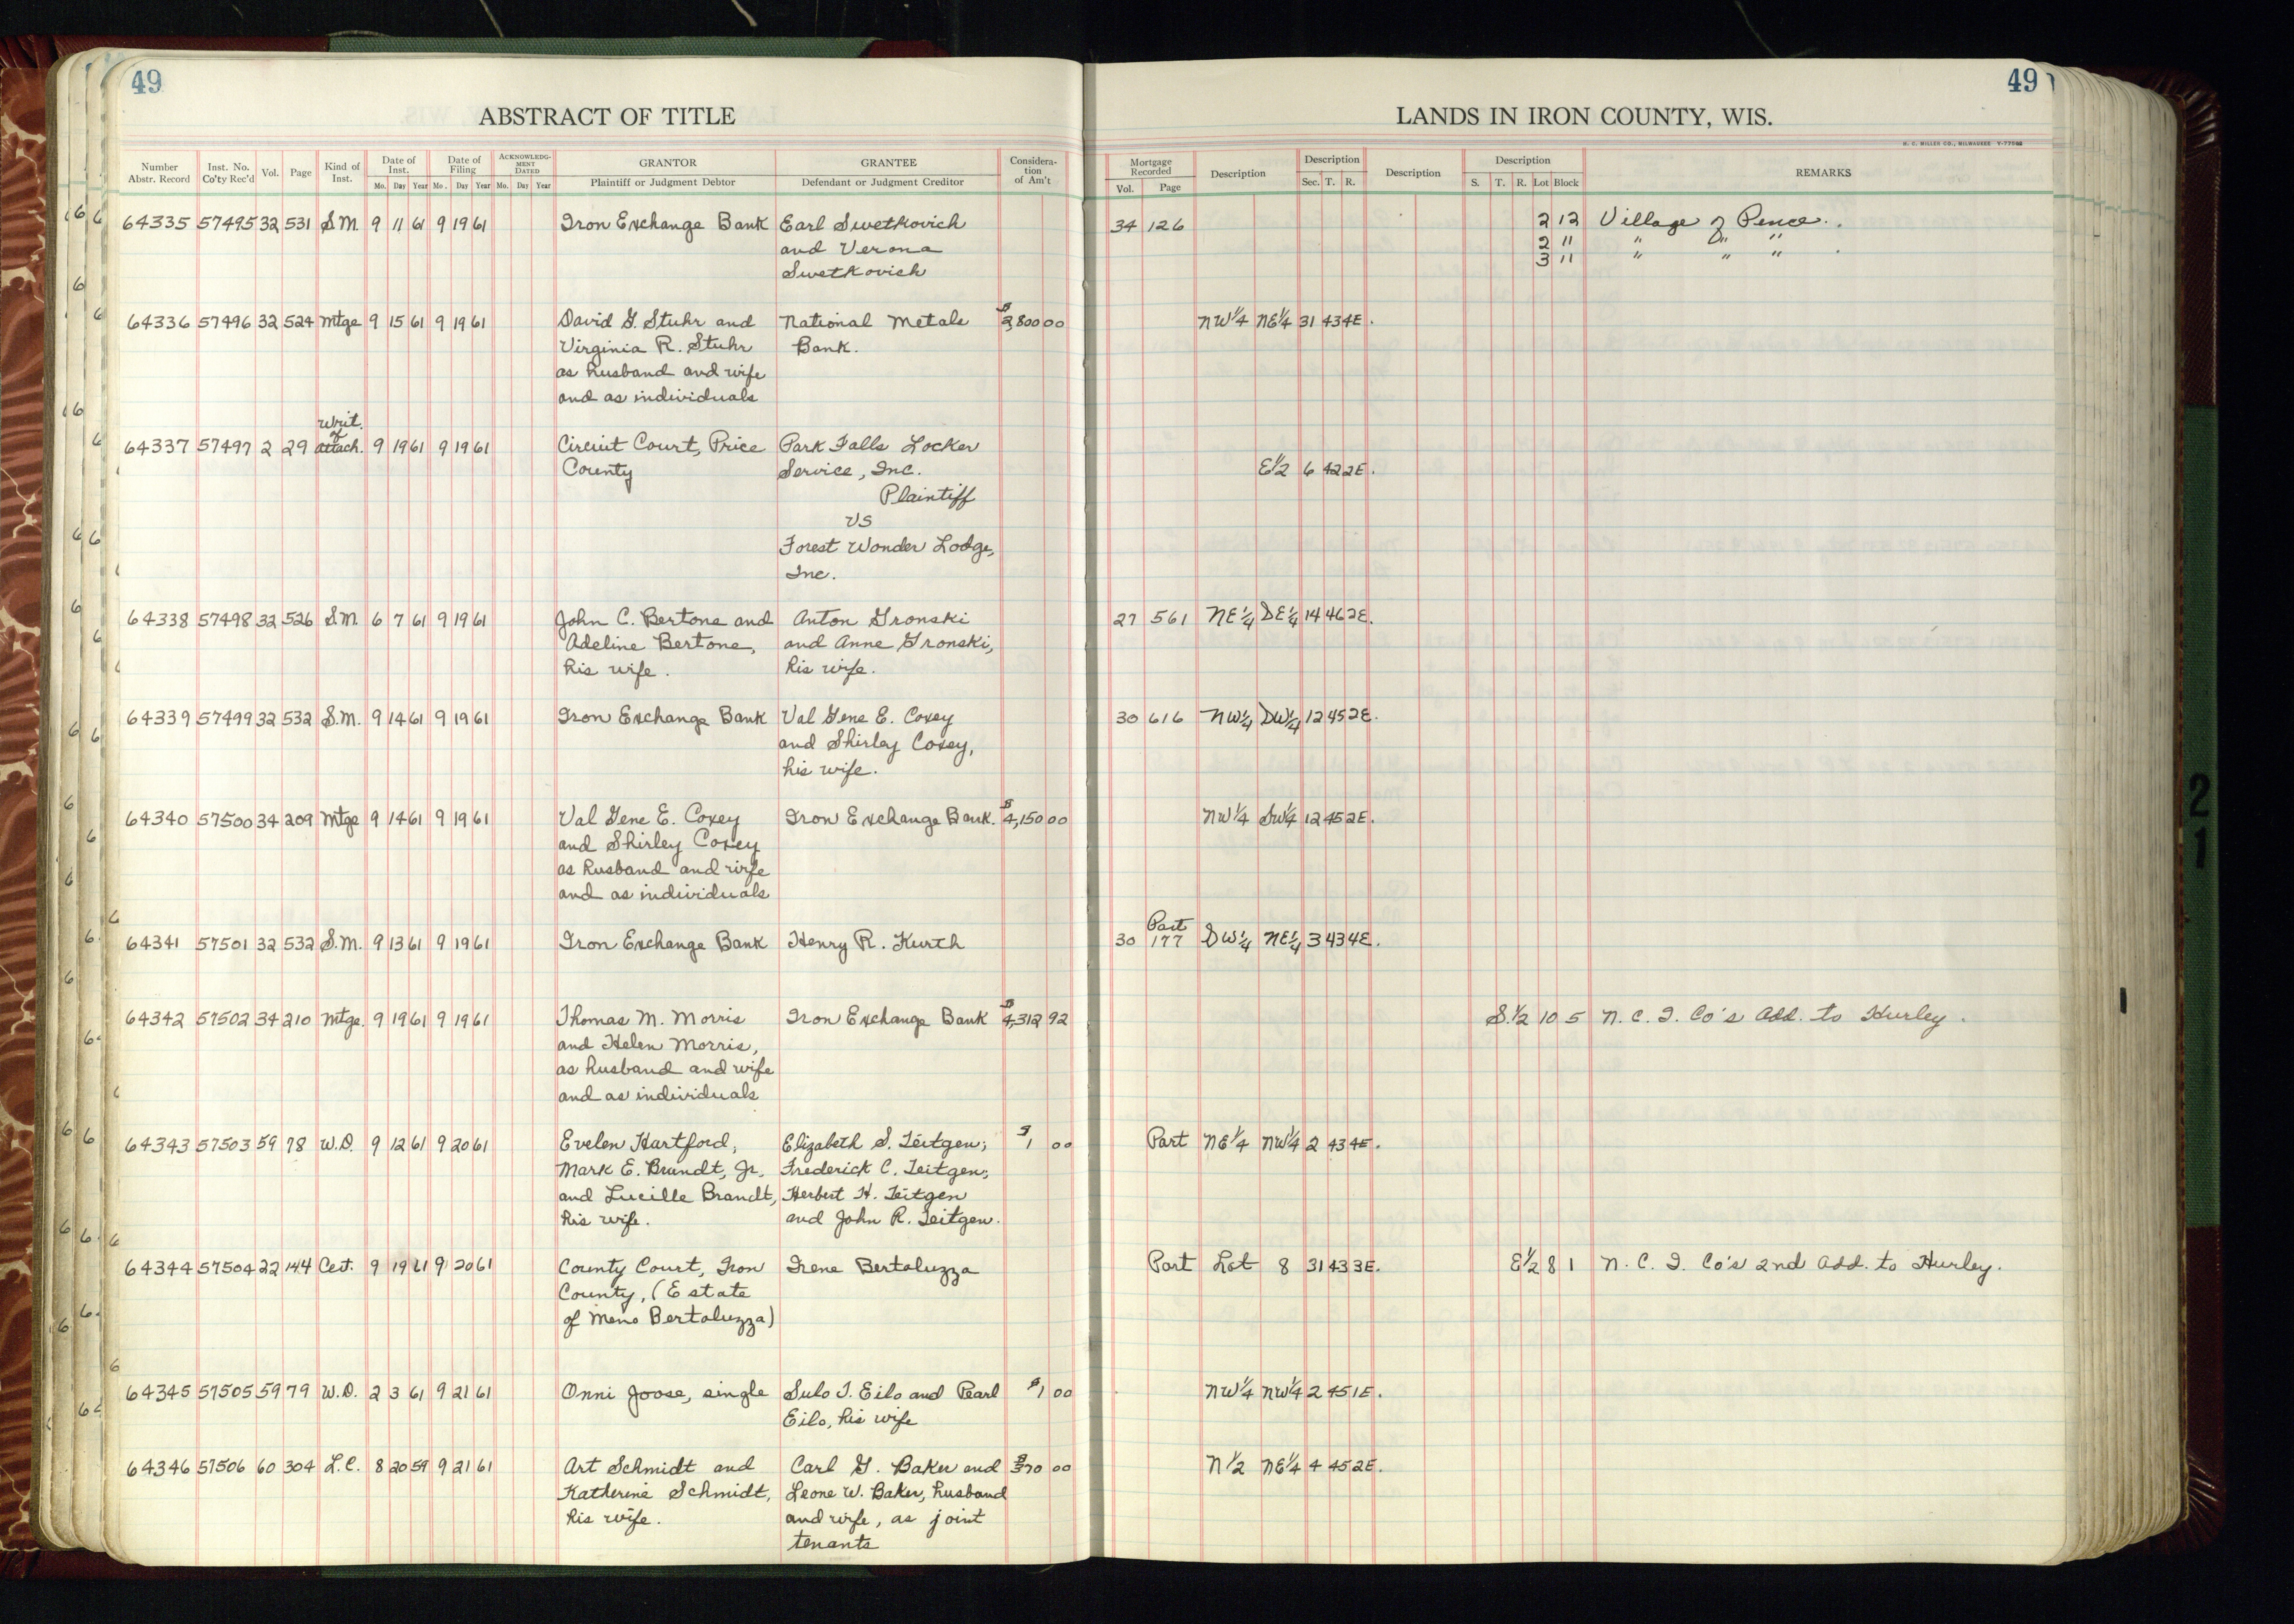 49
49
ABSTRACT OF TITLE
LANDS IN IRON COUNTY, WIS.
H. C. MILLER CO., MILWAUKEE
Number Abstr. Record Inst. No. Co'ty Rec'd Vol. Page Kind of Inst. Date of Inst. Date of Filing ACKNOWLEDGMENT DATED GRANTOR GRANTEE Consideration of Am't Mortgage Recorded Description Description Description Description REMARKS
Mo. Day Year Mo. Day Year Mo. Day Year Plaintiff or Judgment Debtor Defendant or Judgment Creditor Vol. Page Sec. T. R. S. T. R. Lot Block
64335 57495 32 531 S.M. 9 11 61 9 19 61 Iron Exchange Bank Earl Swetkovich 34 126 2 12 Village of Pence.
and Verona 2 11 " " "
Swetkovich 3 11 " " "
64336 57496 32 524 Mtge 9 15 61 9 19 61 David G. Stuhr and National Metals $2,800 00 NW¼ NE¼ 31 43 4E.
Virginia R. Stuhr Bank.
as husband and wife
and as individuals
Writ.
of
64337 57497 2 29 attach. 9 19 61 9 19 61 Circuit Court, Price Park Falls Locker
County Service, Inc. E½ 6 42 2E.
Plaintiff
VS
Forest Wonder Lodge,
Inc.
64338 57498 32 526 S.M. 6 7 61 9 19 61 John C. Bertone and Anton Gronski 27 561 NE¼ SE¼ 14 46 2E.
Adeline Bertone, and Anne Gronski,
his wife. his wife.
64339 57499 32 532 S.M. 9 14 61 9 19 61 Iron Exchange Bank Val Gene E. Coxey 30 616 NW¼ SW¼ 12 45 2E.
and Shirley Coxey,
his wife.
64340 57500 34 209 Mtge 9 14 61 9 19 61 Val Gene E. Coxey Iron Exchange Bank. $4,150 00 NW¼ SW¼ 12 45 2E.
and Shirley Coxey
as husband and wife
and as individuals
Part
64341 57501 32 532 S.M. 9 13 61 9 19 61 Iron Exchange Bank Henry R. Kurth 30 177 SW¼ NE¼ 3 43 4E.
64342 57502 34 210 Mtge. 9 19 61 9 19 61 Thomas M. Morris Iron Exchange Bank $4,312 92 S.½ 10 5 N. C. I. Co's Add. to Hurley.
and Helen Morris,
as husband and wife
and as individuals
64343 57503 59 78 W.D. 9 12 61 9 20 61 Evelen Hartford, Elizabeth S. Teitgen; $1 00 Part NE¼ NW¼ 2 43 4E.
Mark E. Brandt, Jr. Frederick C. Teitgen;
and Lucille Brandt, Herbert H. Teitgen
his wife. and John R. Teitgen.
64344 57504 22 144 Cert. 9 19 61 9 20 61 County Court, Iron Irene Bertaluzza Part Lot 8 31 43 3E. E½ 8 1 N. C. I. Co's 2nd Add. to Hurley.
County, (Estate
of Meno Bertaluzza)
64345 57505 59 79 W.D. 2 3 61 9 21 61 Onni Joosa, single Sulo I. Eilo and Pearl $1 00 NW¼ NW¼ 2 45 1E.
Eilo, his wife
64346 57506 60 304 L.C. 8 20 59 9 21 61 Art Schmidt and Carl G. Baker and $370 00 N½ NE¼ 4 45 2E.
Katherine Schmidt, Leone W. Baker, husband
his wife. and wife, as joint
tenants
2
1